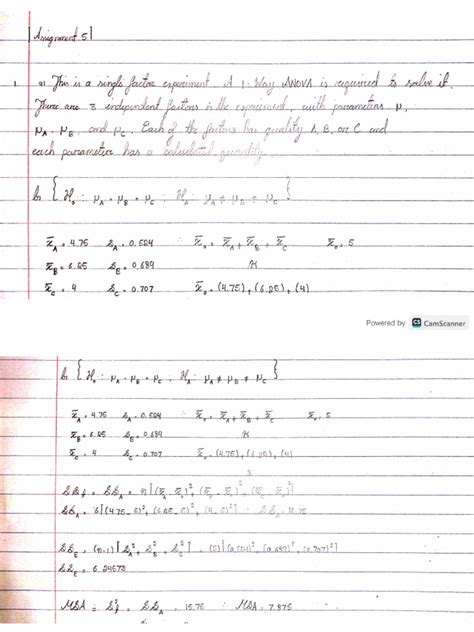 Assignment 5
1. a) This is a single factor experiment. A 1-Way ANOVA is required to solve it.
There are 3 independent factors in the experiment, with parameters μ,
μA, μB, and μC. Each of the factors has quality A, B, or C and
each parameter has a calculated quantity.
b) { H₀ : μA = μB = μC ; Hₐ : μA ≠ μB ≠ μC }
x̄A = 4.75 sA = 0.524 ∴ x̄₀ = x̄A + x̄B + x̄C x̄₀ = 5
x̄B = 6.25 sB = 0.689 K
x̄C = 4 sC = 0.707 x̄₀ = (4.75) + (6.25) + (4)
Powered by CS CamScanner
b) { H₀ : μA = μB = μC ; Hₐ : μA ≠ μB ≠ μC }
x̄A = 4.75 sA = 0.524 ∴ x̄₀ = x̄A + x̄B + x̄C x̄₀ = 5
x̄B = 6.25 sB = 0.689 K
x̄C = 4 sC = 0.707 x̄₀ = (4.75) + (6.25) + (4)
3
= SSA = n[(x̄A - x̄₀)², (x̄B - x̄₀)², (x̄C - x̄₀)²]
SSA = 6[(4.75 - 5)², (6.25 - 5)², (4 - 5)²] ∴ SSA = 15.75
SSE = (n-1)[sA², sB², sC²] = (5)[(0.524)², (0.689)², (0.707)²]
SSE = 6.24573
MSA = = SSA = 15.75 ∴ MSA = 7.875